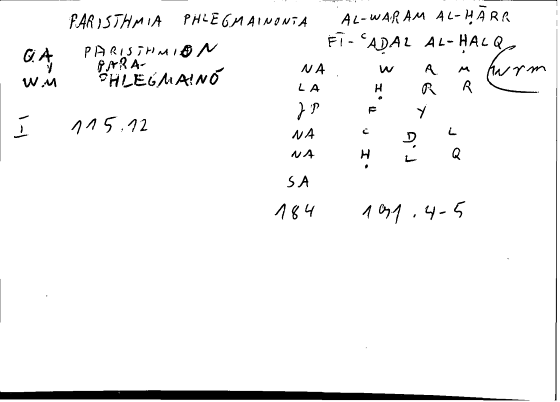 PARISTHMIA PHLEGMAINONTA AL-WARAM AL-ḤĀRR
FĪ-ʿAḌAL AL-ḤALQ
QA PARISTHMION
PARA-
WM PHLEGMAINŌ
NA W R M wrm
LA Ḥ R R
JP F Y
NA ʿ Ḍ L
NA Ḥ L Q
SA
I 115.12
184 191.4-5